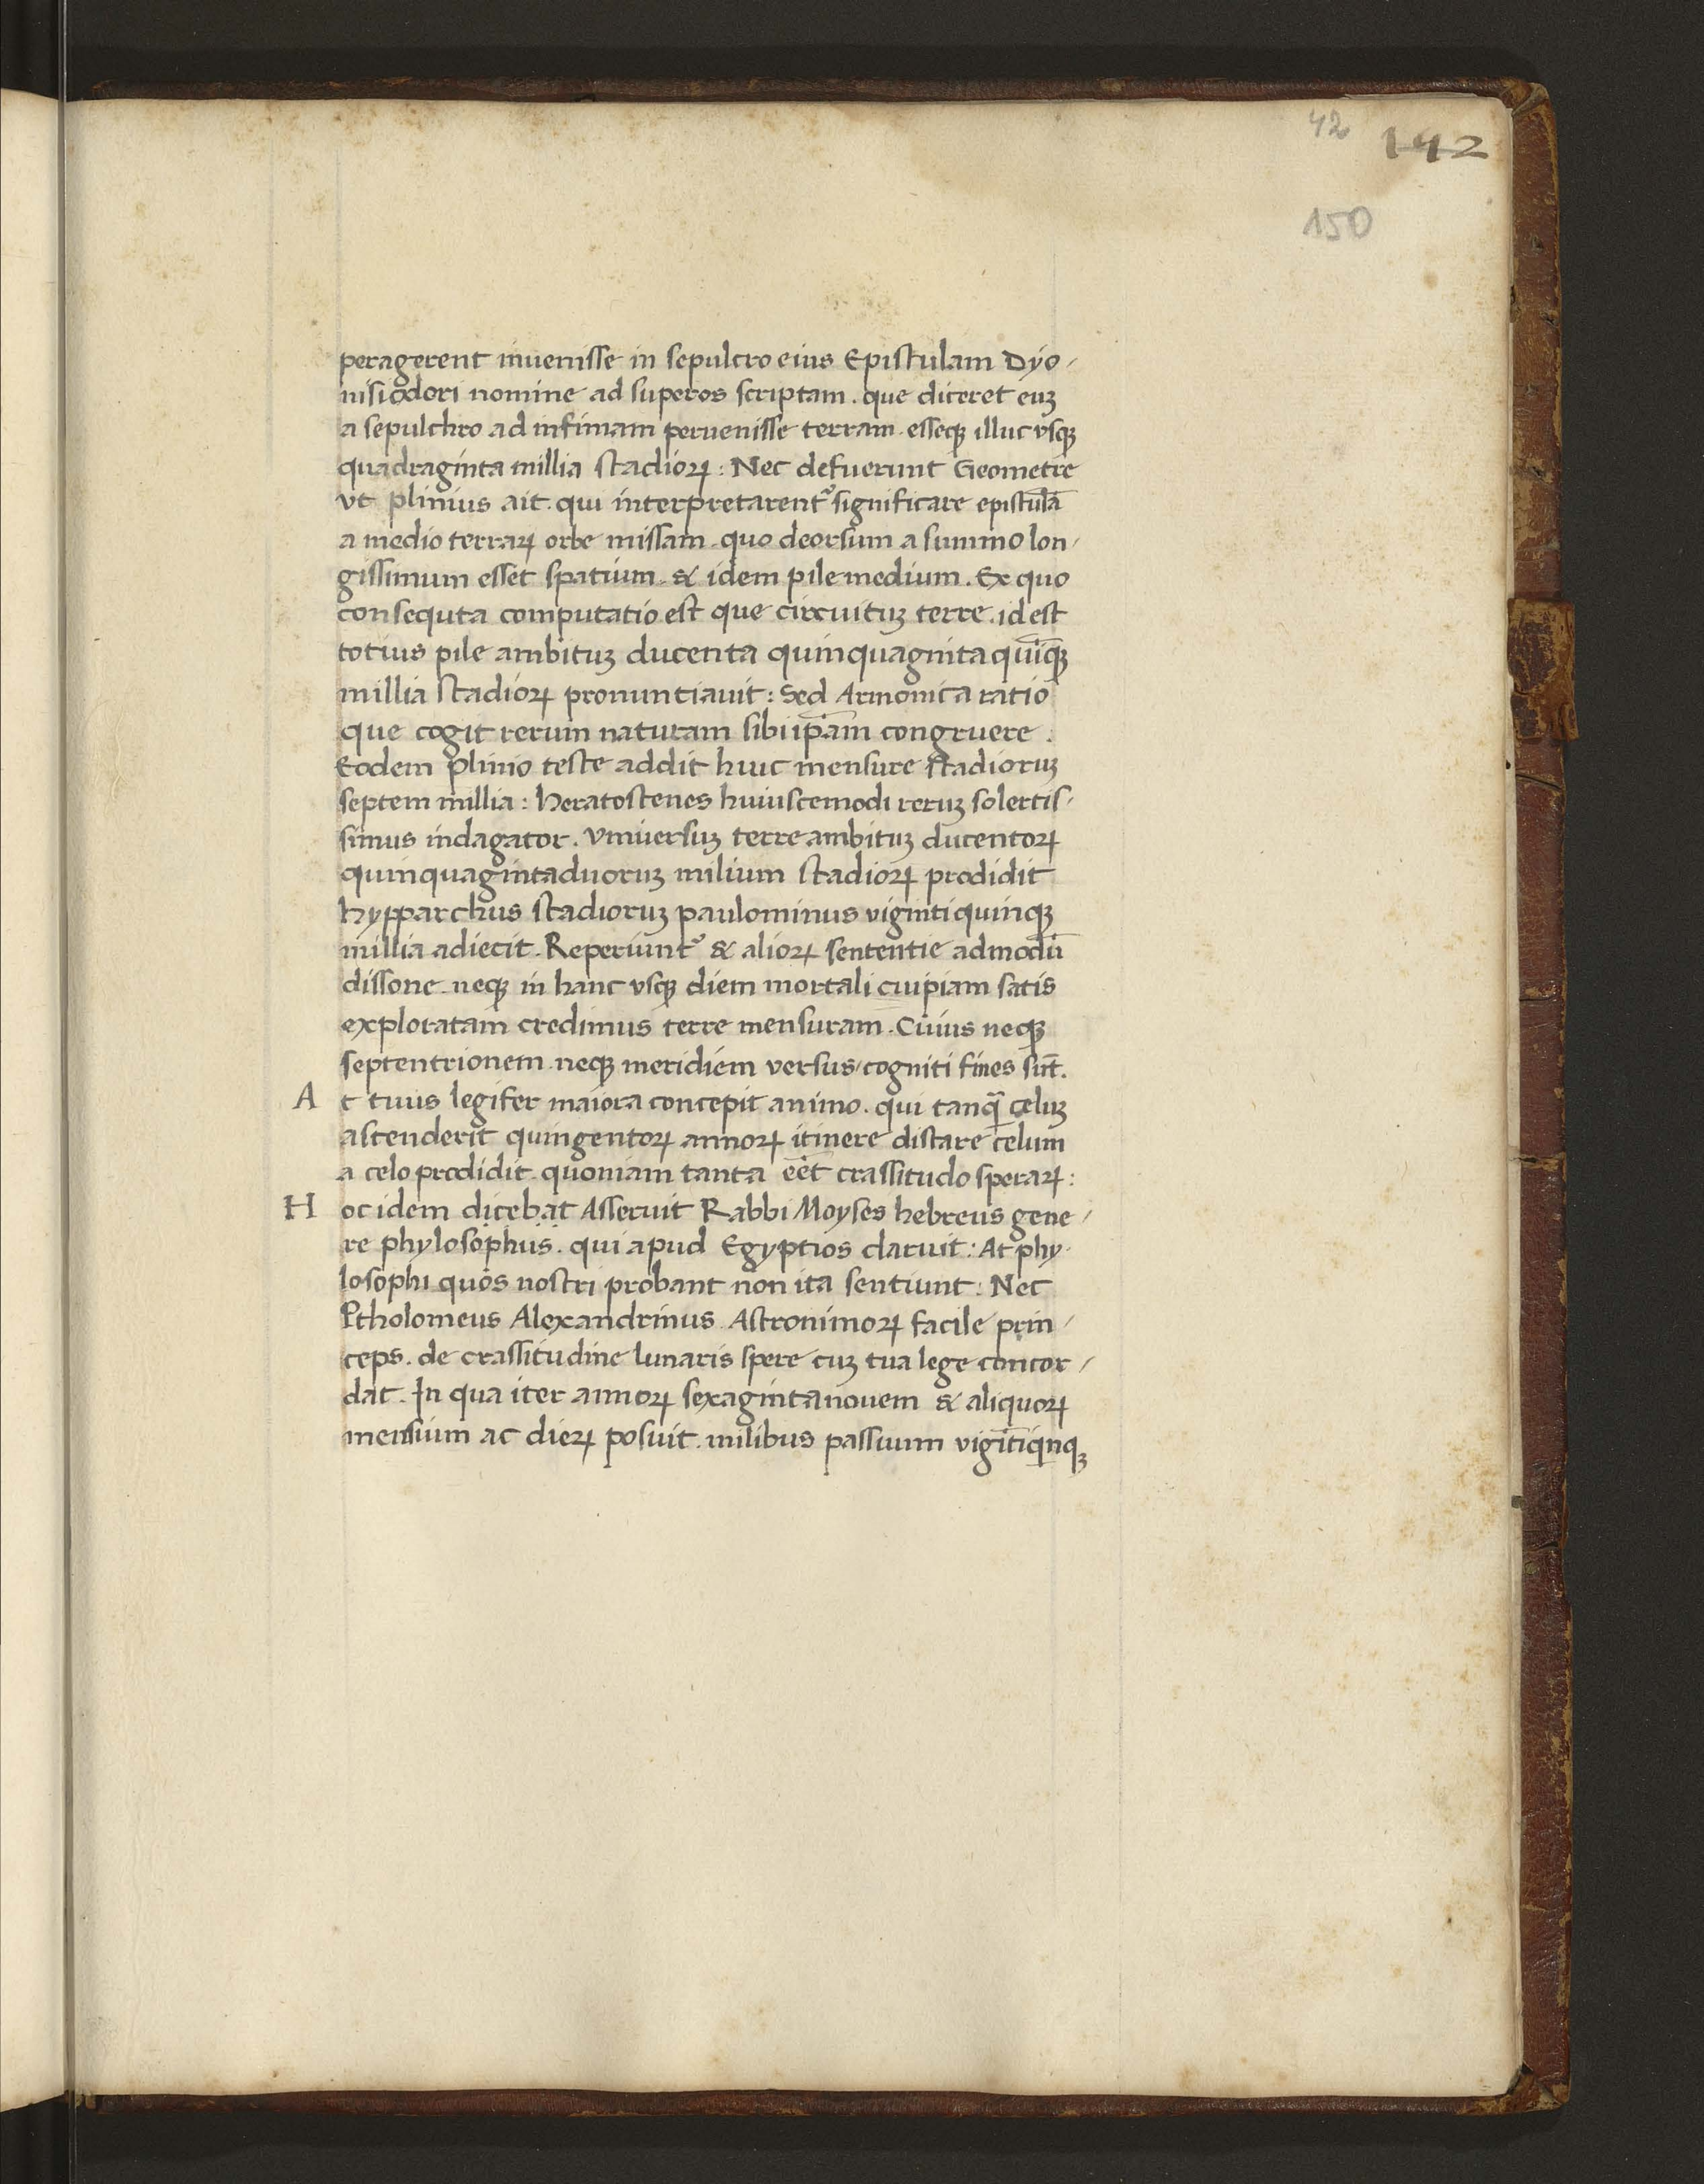 42 142
150
peragerent inuenisse in sepulcro eius Epistulam Dyo-
nisiodori nomine ad superos scriptam . que diceret euꝫ
a sepulchro ad infimam peruenisse terram . esseqꝫ illuc vsqꝫ
quadraginta millia stadioꝝ : Nec defuerunt Geometre
vt plinius ait . qui interpretarentᷣ significare epistulā
a medio terraꝝ orbe missam . quo deorsum a summo lon-
gissimum esset spatium . & idem pile medium . Ex quo
consequta computatio est que circuituꝫ terre . id est
totius pile ambituꝫ ducenta quinquaginta quīqꝫ
millia stadioꝝ pronuntiauit : Sed Armonica ratio
que cogit rerum naturam sibi ip̄am congruere .
Eodem plinio teste addit huic mensure stadioruꝫ
septem millia : heratostenes huiuscemodi reruꝫ solertis-
simus indagator . vniuersuꝫ terre ambituꝫ ducentoꝝ
quinquagintaduoruꝫ milium stadioꝝ prodidit
hypparchus stadioruꝫ paulominus vigintiquinqꝫ
millia adiecit . Reperiuntᷣ & alioꝝ sententie admodū
dissone . neqꝫ in hanc vsqꝫ diem mortali cuipiam satis
exploratam credimus terre mensuram . Cuius neqꝫ
septentrionem . neqꝫ meridiem versus cogniti fines sūt .
A t tuus legifer maiora concepit animo . qui tanq̄ celuꝫ
ascenderit quingentoꝝ annoꝝ itinere distare celum
a celo prodidit . quoniam tanta eēt crassitudo speraꝝ :
H oc idem dicebat Asseruit Rabbi Moyses hebreus gene-
re phylosophus . qui apud Egyptios claruit : At phy-
losophi quos nostri probant non ita sentiunt : Nec
Ptholomeus Alexandrinus Astronimoꝝ facile prin-
ceps . de crassitudine lunaris spere cuꝫ tua lege concor-
dat . In qua iter annoꝝ sexagintanouem & aliquoꝝ
mensium ac dieꝝ posuit . milibus passuum vigītiqinqꝫ